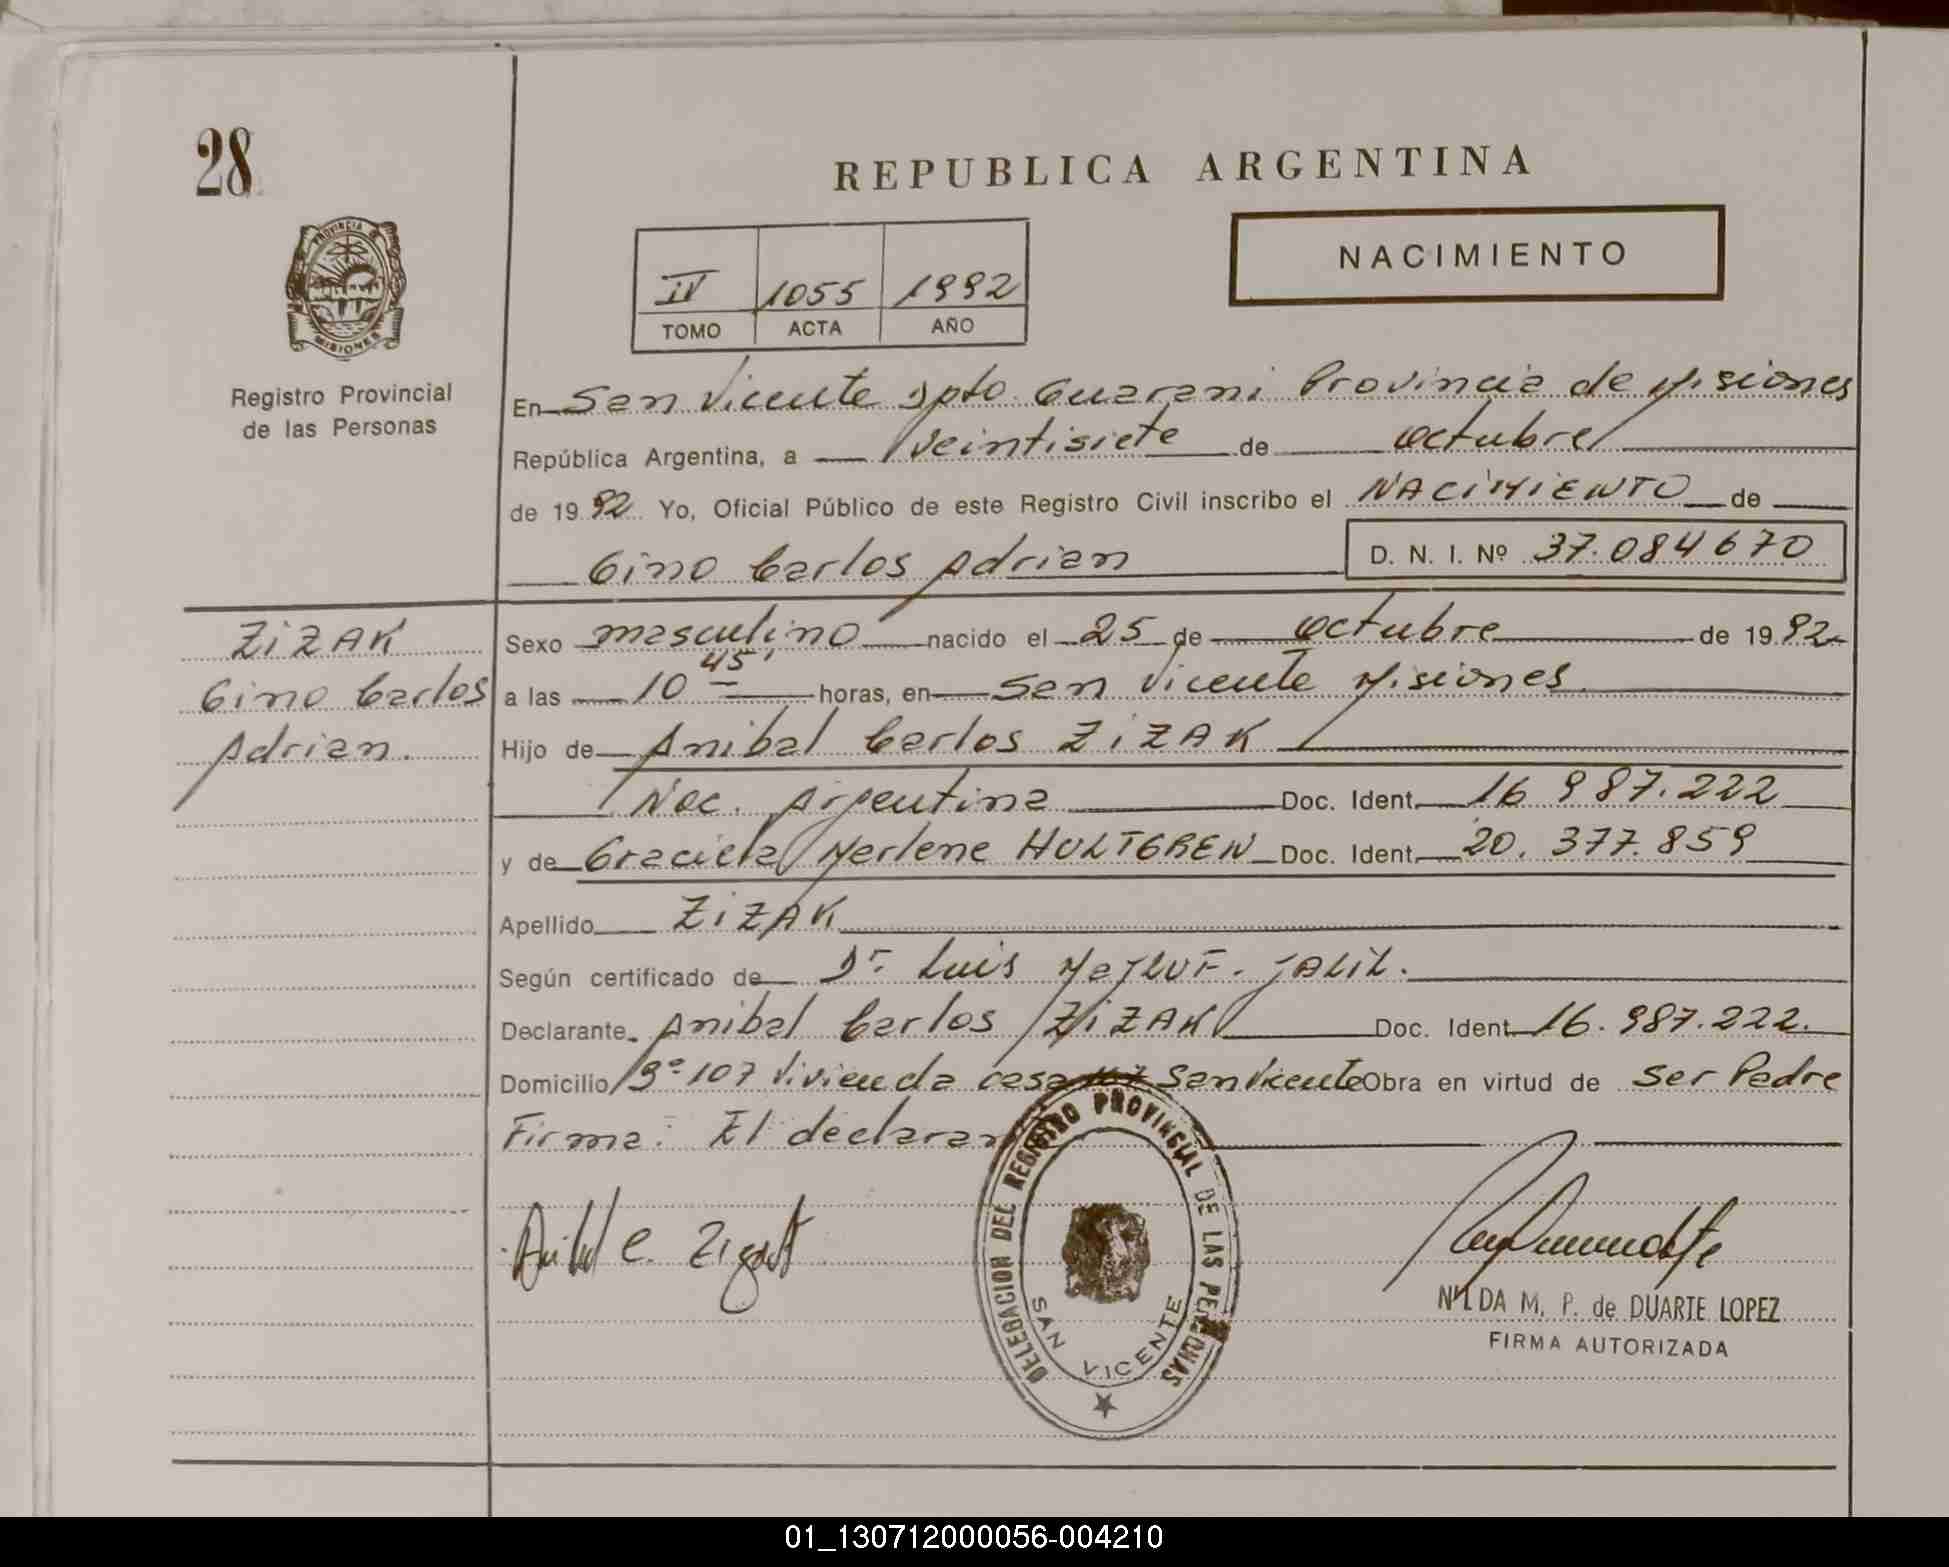 28
REPUBLICA ARGENTINA
NACIMIENTO
IV 1055 1992
TOMO ACTA AÑO
PROVINCIA D MISIONES
Registro Provincial
de las Personas
En San Vicente Dpto. Guarani Provincia de Misiones
República Argentina, a veintisiete de octubre
de 1992 Yo, Oficial Público de este Registro Civil inscribo el NACIMIENTO de
Gino Carlos Adrian D. N. I. Nº 37.084670
ZiZAK
Gino Carlos
Adrian.
Sexo masculino nacido el 25 de octubre de 1992
a las 10 45' horas, en San Vicente Misiones
Hijo de Anibal Carlos ZiZAK
Nac. Argentina Doc. Ident. 16 987.222
y de Graciela Merlene HULTGREN Doc. Ident. 20.377.859
Apellido ZiZAK
Según certificado de Dr. Luis JALIL.
Declarante Anibal Carlos ZiZAK Doc. Ident. 16.987.222.
Domicilio Bº 107 Vivienda casa San Vicente Obra en virtud de ser Padre
Firma: El declaran
Anibal C. Zizak
DELEGACION DEL REGISTRO PROVINCIAL DE LAS PERSONAS
SAN VICENTE
NILDA M. P. de DUARTE LOPEZ
FIRMA AUTORIZADA
01_130712000056-004210